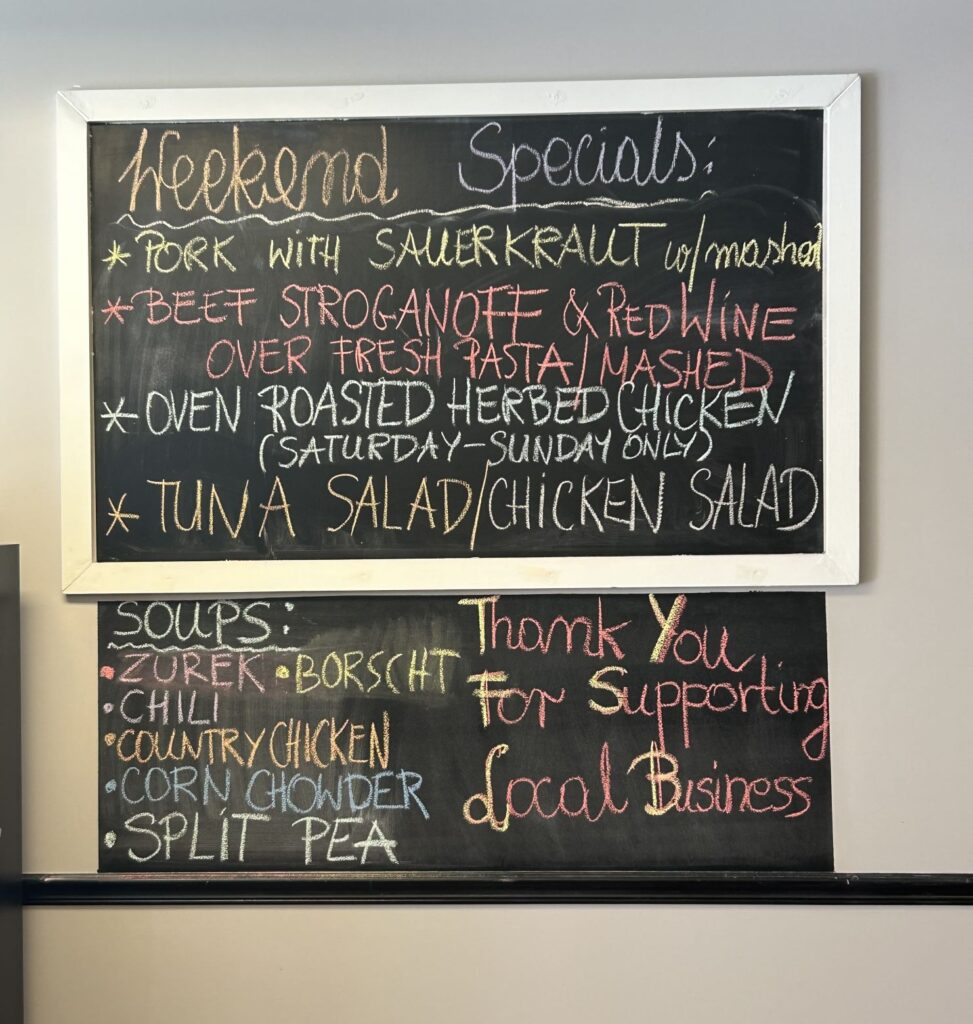 Weekend Specials:
* PORK WITH SAUERKRAUT w/mashed
* BEEF STROGANOFF & RED WINE
OVER FRESH PASTA/MASHED
* OVEN ROASTED HERBED CHICKEN
(SATURDAY-SUNDAY ONLY)
* TUNA SALAD/CHICKEN SALAD
SOUPS:
• ZUREK • BORSCHT
• CHILI
• COUNTRY CHICKEN
• CORN CHOWDER
• SPLIT PEA
Thank You
For Supporting
Local Business